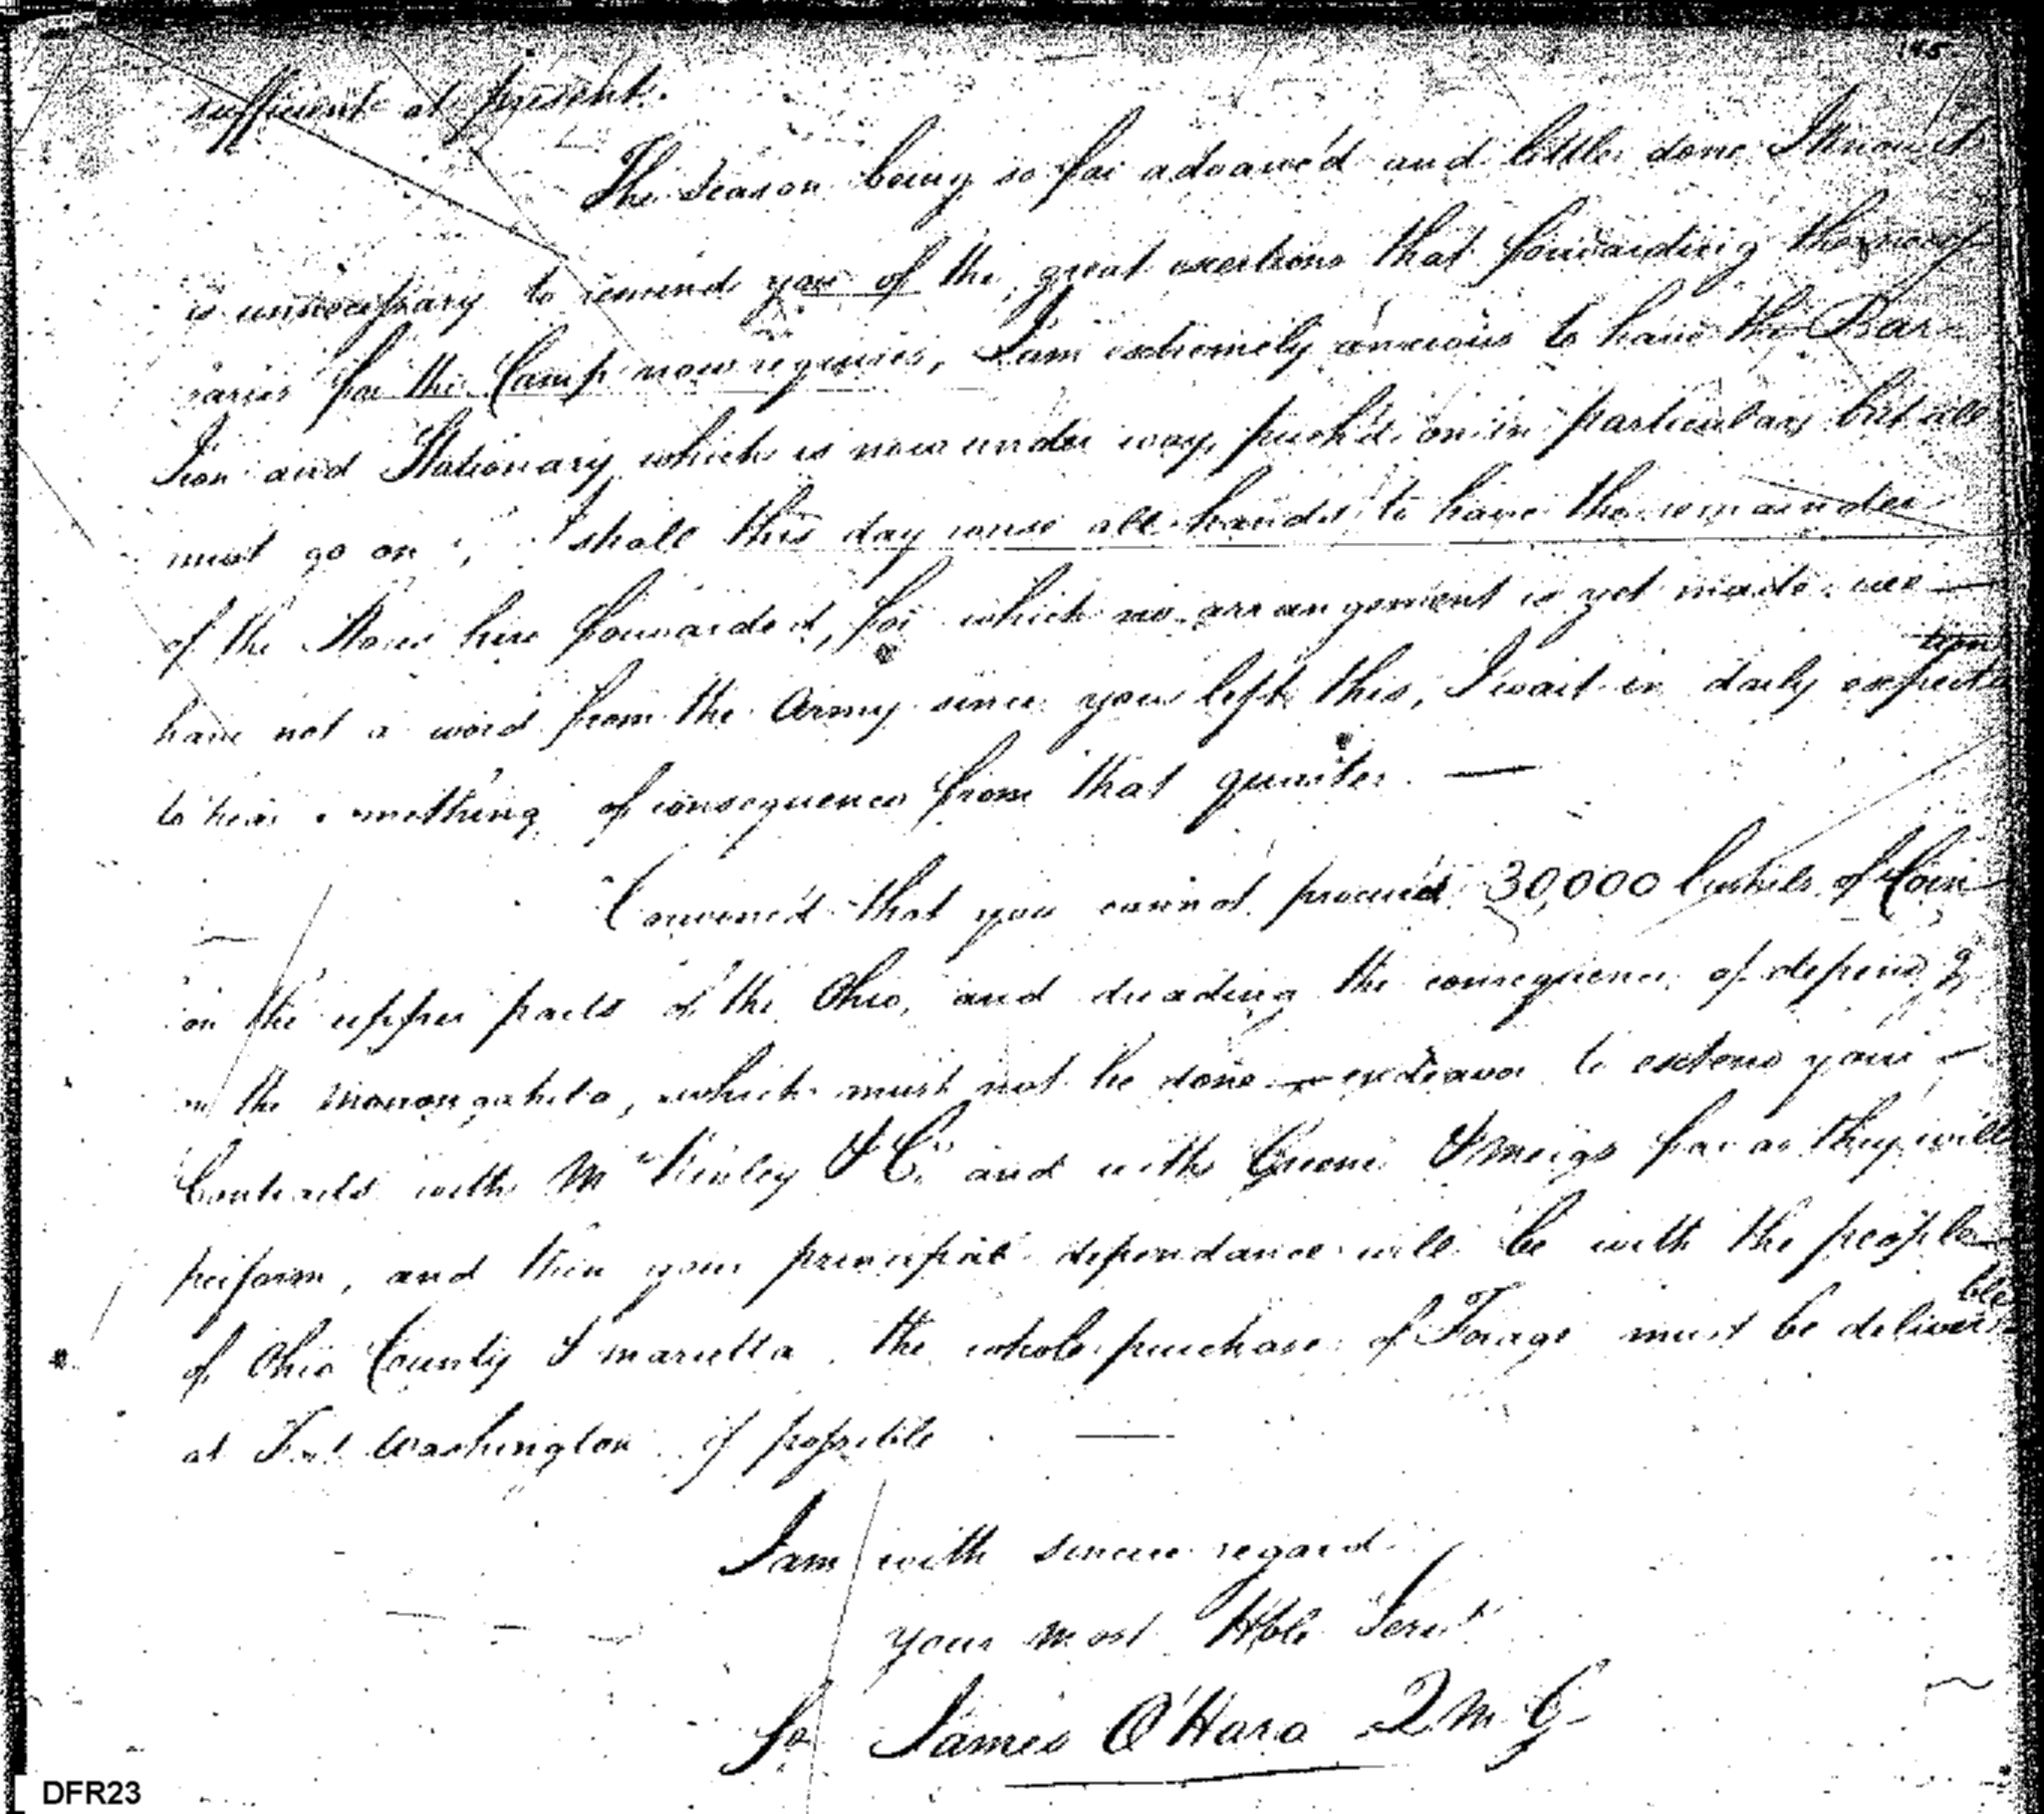 145
sufficient at present.
The season being so far advanc'd and little done I know it
is unnecessary to remind you of the great exertions that forwarding the neces
saries for the Camp now requires, I am extremely anxious to have the Bar
Iron and Stationary which is now under way, push'd on in particular, but all
must go on, I shall this day rouse all hands to have the remainder
of the Stores here forwarded, for which no arrangement is yet made. we
have not a word from the Army since you left this, I wait in daily expecta
tion
to hear something of consequence from that quarter. —
Convinc'd that you cannot procure 30,000 bushels of Corn
on the upper parts of the Ohio, and dreading the consequence of depend.g
on the Monongahela, which must not be done — endeavor to extend your
Contracts with McKinley & Co. and with Greene & Meigs far as they will
perform, and then your principal dependance will be with the people
of Ohio County & Marietta. the whole purchase of Forage must be delivera
ble
at Fort Washington if possible —
I am with sincere regard
your most Hble Servt
James O'Hara Q M G
DFR23